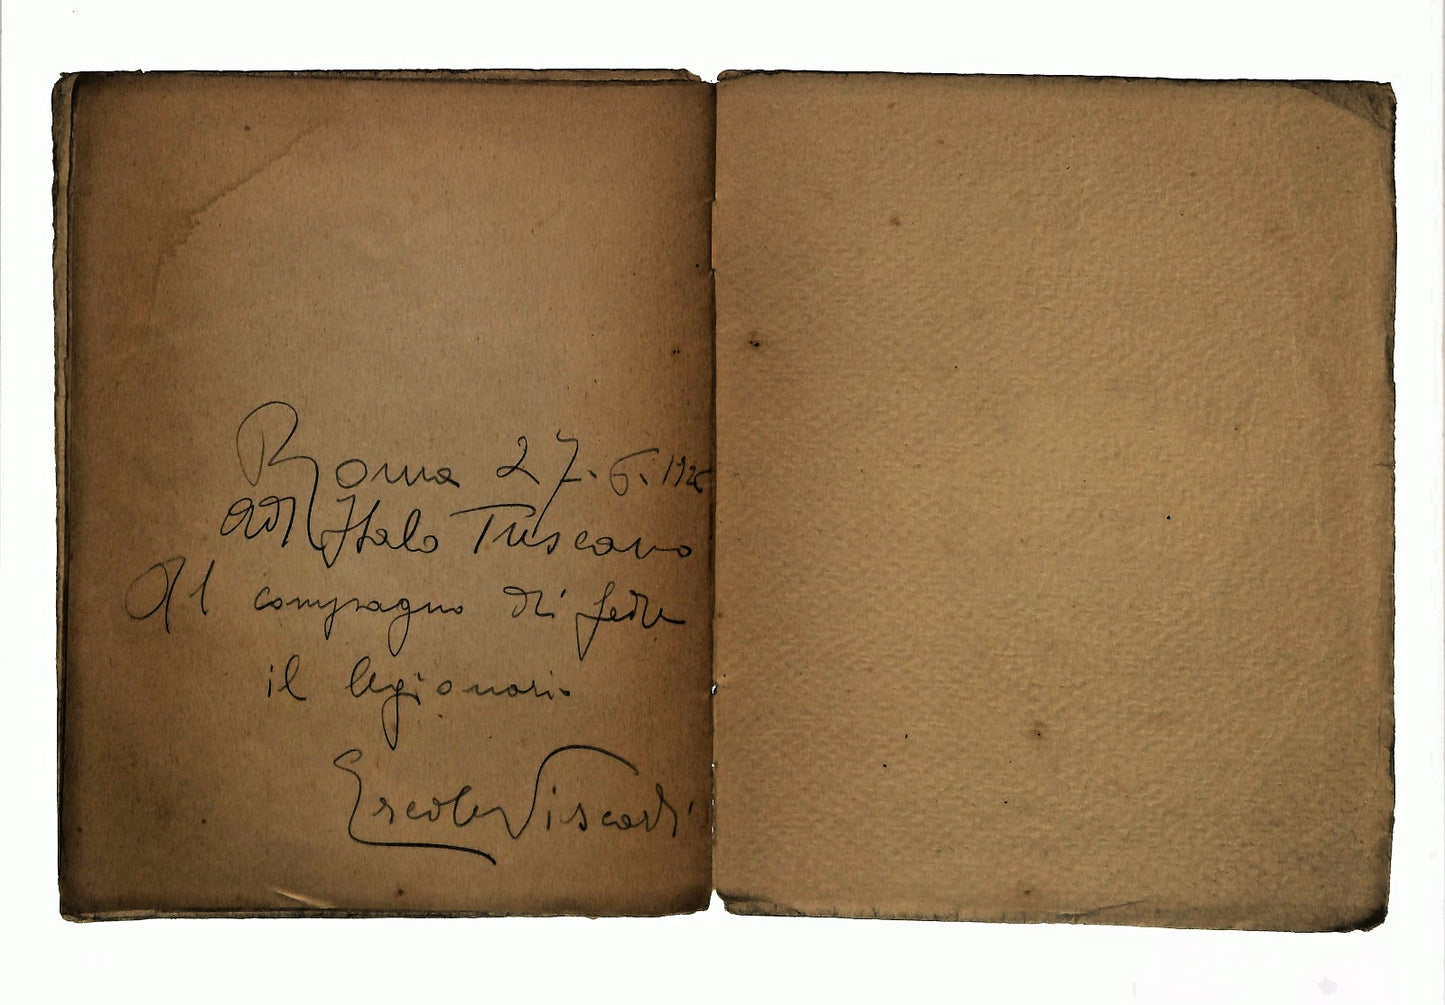 Roma 27.6.1926
ad Italo Tuscano
Al compagno di fede
il legionario
Ercole Viscardi